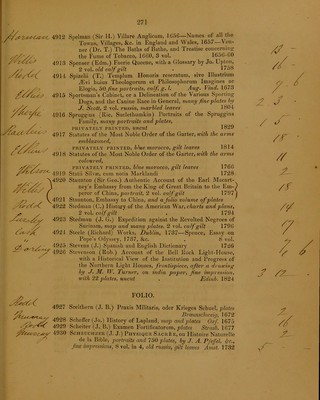 271
4912 Spelman (Sir H.) Villare Anglicum, 1656—Names of all the
Towns, Villages, &c. in England and Wales, 1657—Ven-
ner (Dr. T.) The Baths of Bathe, and Treatise concerning
the Fume of Tobacco, 1660, 3 vol. 1656-60
4913 Spenser (Edm.) Faerie Queene, with a Glossary by Jo. Upton,
2 vol. old calf gilt 1758
4914 Spizelii (T.) Templum Honoris reseratum, sive Illustrium
Ævi hujus Theologorum et Philosophorum Imagines ac
Elogia, 50 fine portraits, calf, g. l. Aug. Vind. 1673
4915 Sportsman's Cabinet, or a Delineation of the Various Sporting
Dogs, and the Canine Race in General, many fine plates by
J. Scott, 2 vol. russia, marbled leaves 1804
4916 Spraggins (Ric. Smilethunkin) Portraits of the Spraggins
Family, many portraits and plates,
PRIVATELY PRINTED, uncut 1829
4917 Statutes of the Most Noble Order of the Garter, with the arms
emblazoned,
PRIVATELY PRINTED, blue morocco, gilt leaves 1814
4918 Statutes of the Most Noble Order of the Garter, with the arms
coloured,
PRIVATELY PRINTED, blue morocco, gilt leaves 1766
4919 Statii Silvæ, cum notis Marklandi 1728
4920 Staunton (Sir Geo.) Authentic Account of the Earl Macart-
ney's Embassy from the King of Great Britain to the Em-
peror of China, portrait, 2 vol. calf gilt 1797
4921 Staunton, Embassy to China, and a folio volume of plates
4922 Stedman (C.) History of the American War, charts and plans,
2 vol. calf gilt 1794
4923 Stedman (J. G.) Expedition against the Revolted Negroes of
Surinam, map and many plates, 2 vol. calf gilt 1796
4924 Steele (Richard) Works, Dublin, 1737—Spence, Essay on
Pope's Odyssey, 1737, &c. 8 vol.
4925 Stevens (J.) Spanish and English Dictionary 1726
4926 Stevenson (Rob.) Account of the Bell Rock Light-House,
with a Historical View of the Institution and Progress of
the Northern Light Houses, frontispiece, after a drawing
by J. M. W. Turner, on india paper, fine impression,
with 22 plates, uncut Edinb. 1824
FOLIO.
4927 Smithorn (J. B.) Praxis Militaris, oder Krieges Schuel, plans
Braunschweig, 1672
4928 Scheffer (Jo.) History of Lapland, map and plates Oxf. 1675
4929 Scheiter (J. B.) Examen Fortificatorum, plans Strasb. 1677
4930 SCHEUCHZER (J. J.) PHYSIQUE SACRE'E, ou Histoire Naturelle
de la Bible, portraits and 750 plates, by J. A. Pfeffel, &c.,
fine impressions, 8 vol. in 4, old russia, gilt leaves Amst. 1732